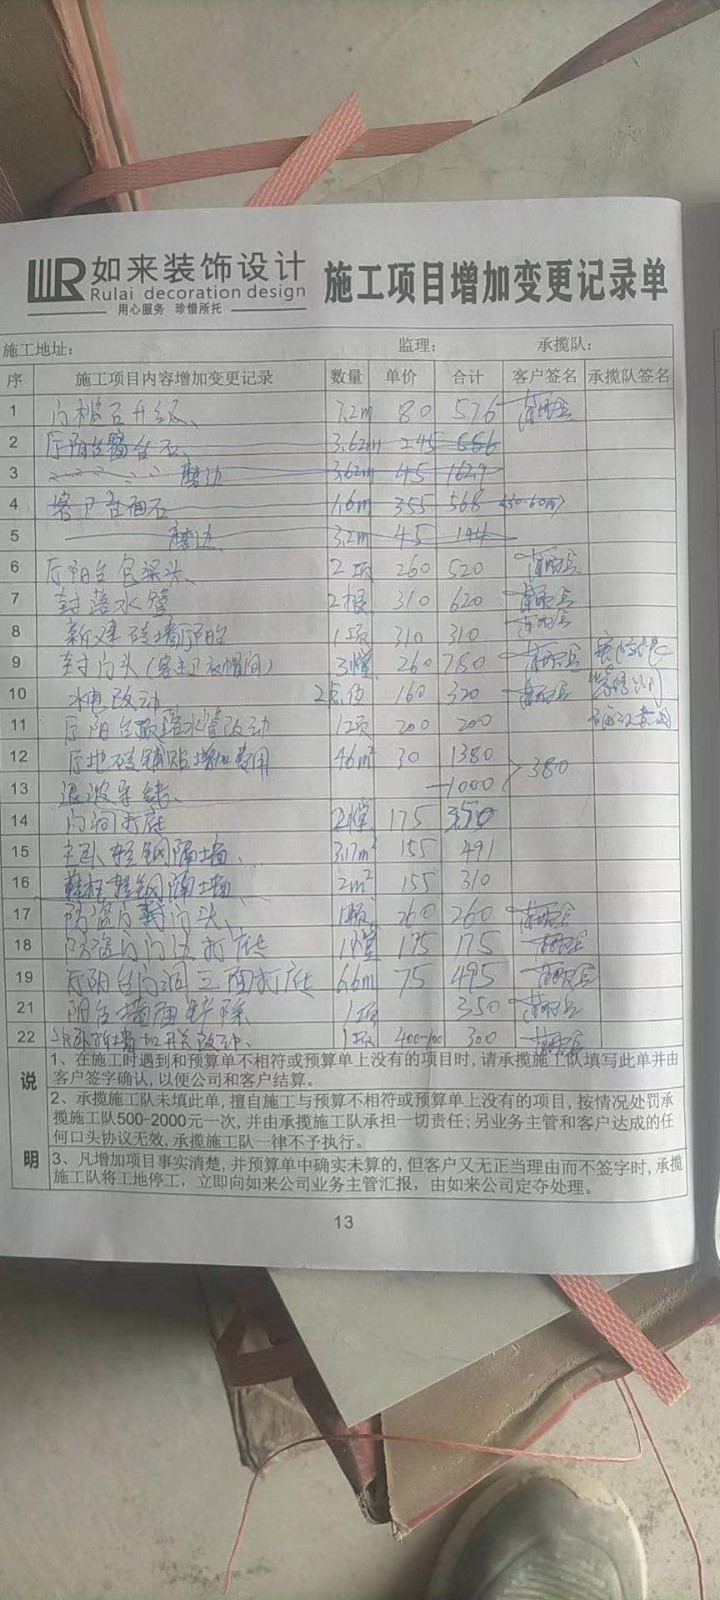 如来装饰设计
Rulai decoration design
用心服务 珍惜所托
施工项目增加变更记录单
施工地址: 监理: 承揽队:
序 施工项目内容增加变更记录 数量 单价 合计 客户签名 承揽队签名
1 门槛石升级、 7.2m 80 576
2 后阳台窗台石、 3.62m 245 886
3 磨边 3.62m 45 162.9
4 客卫台面石 1.6m 355 568
5 磨边 3.2m 45 144
6 后阳台包梁头、 2项 260 520
7 封落水管 2根 310 620
8 新建砖墙 1项 310 310
9 封门头(客主卫衣帽间) 3樘 260 780
10 水电改动 2点位 160 320
11 后阳台 落水管改动 1项 200 200
12 后地砖铺贴增加费用 46m² 30 1380 380
13 -1000
14 门洞打底 2樘 175 350
15 主卧轻钢隔墙、 3.17m² 155 491
16 鞋柜轻钢隔墙 2m² 155 310
17 防盗门封门头、 1项 260 260
18 防盗门门边打底 1樘 175 175
19 后阳台门洞三面打底 6.6m 75 495
21 阳台墙面铲除 1项 350
22 加开关改动、 1项 400-100 300
说
明
1、在施工时遇到和预算单不相符或预算单上没有的项目时,请承揽施工队填写此单并由
客户签字确认,以便公司和客户结算。
2、承揽施工队未填此单,擅自施工与预算不相符或预算单上没有的项目,按情况处罚承
揽施工队500-2000元一次,并由承揽施工队承担一切责任;另业务主管和客户达成的任
何口头协议无效,承揽施工队一律不予执行。
3、凡增加项目事实清楚,并预算单中确实未算的,但客户又无正当理由而不签字时,承揽
施工队将工地停工,立即向如来公司业务主管汇报,由如来公司定夺处理。
13